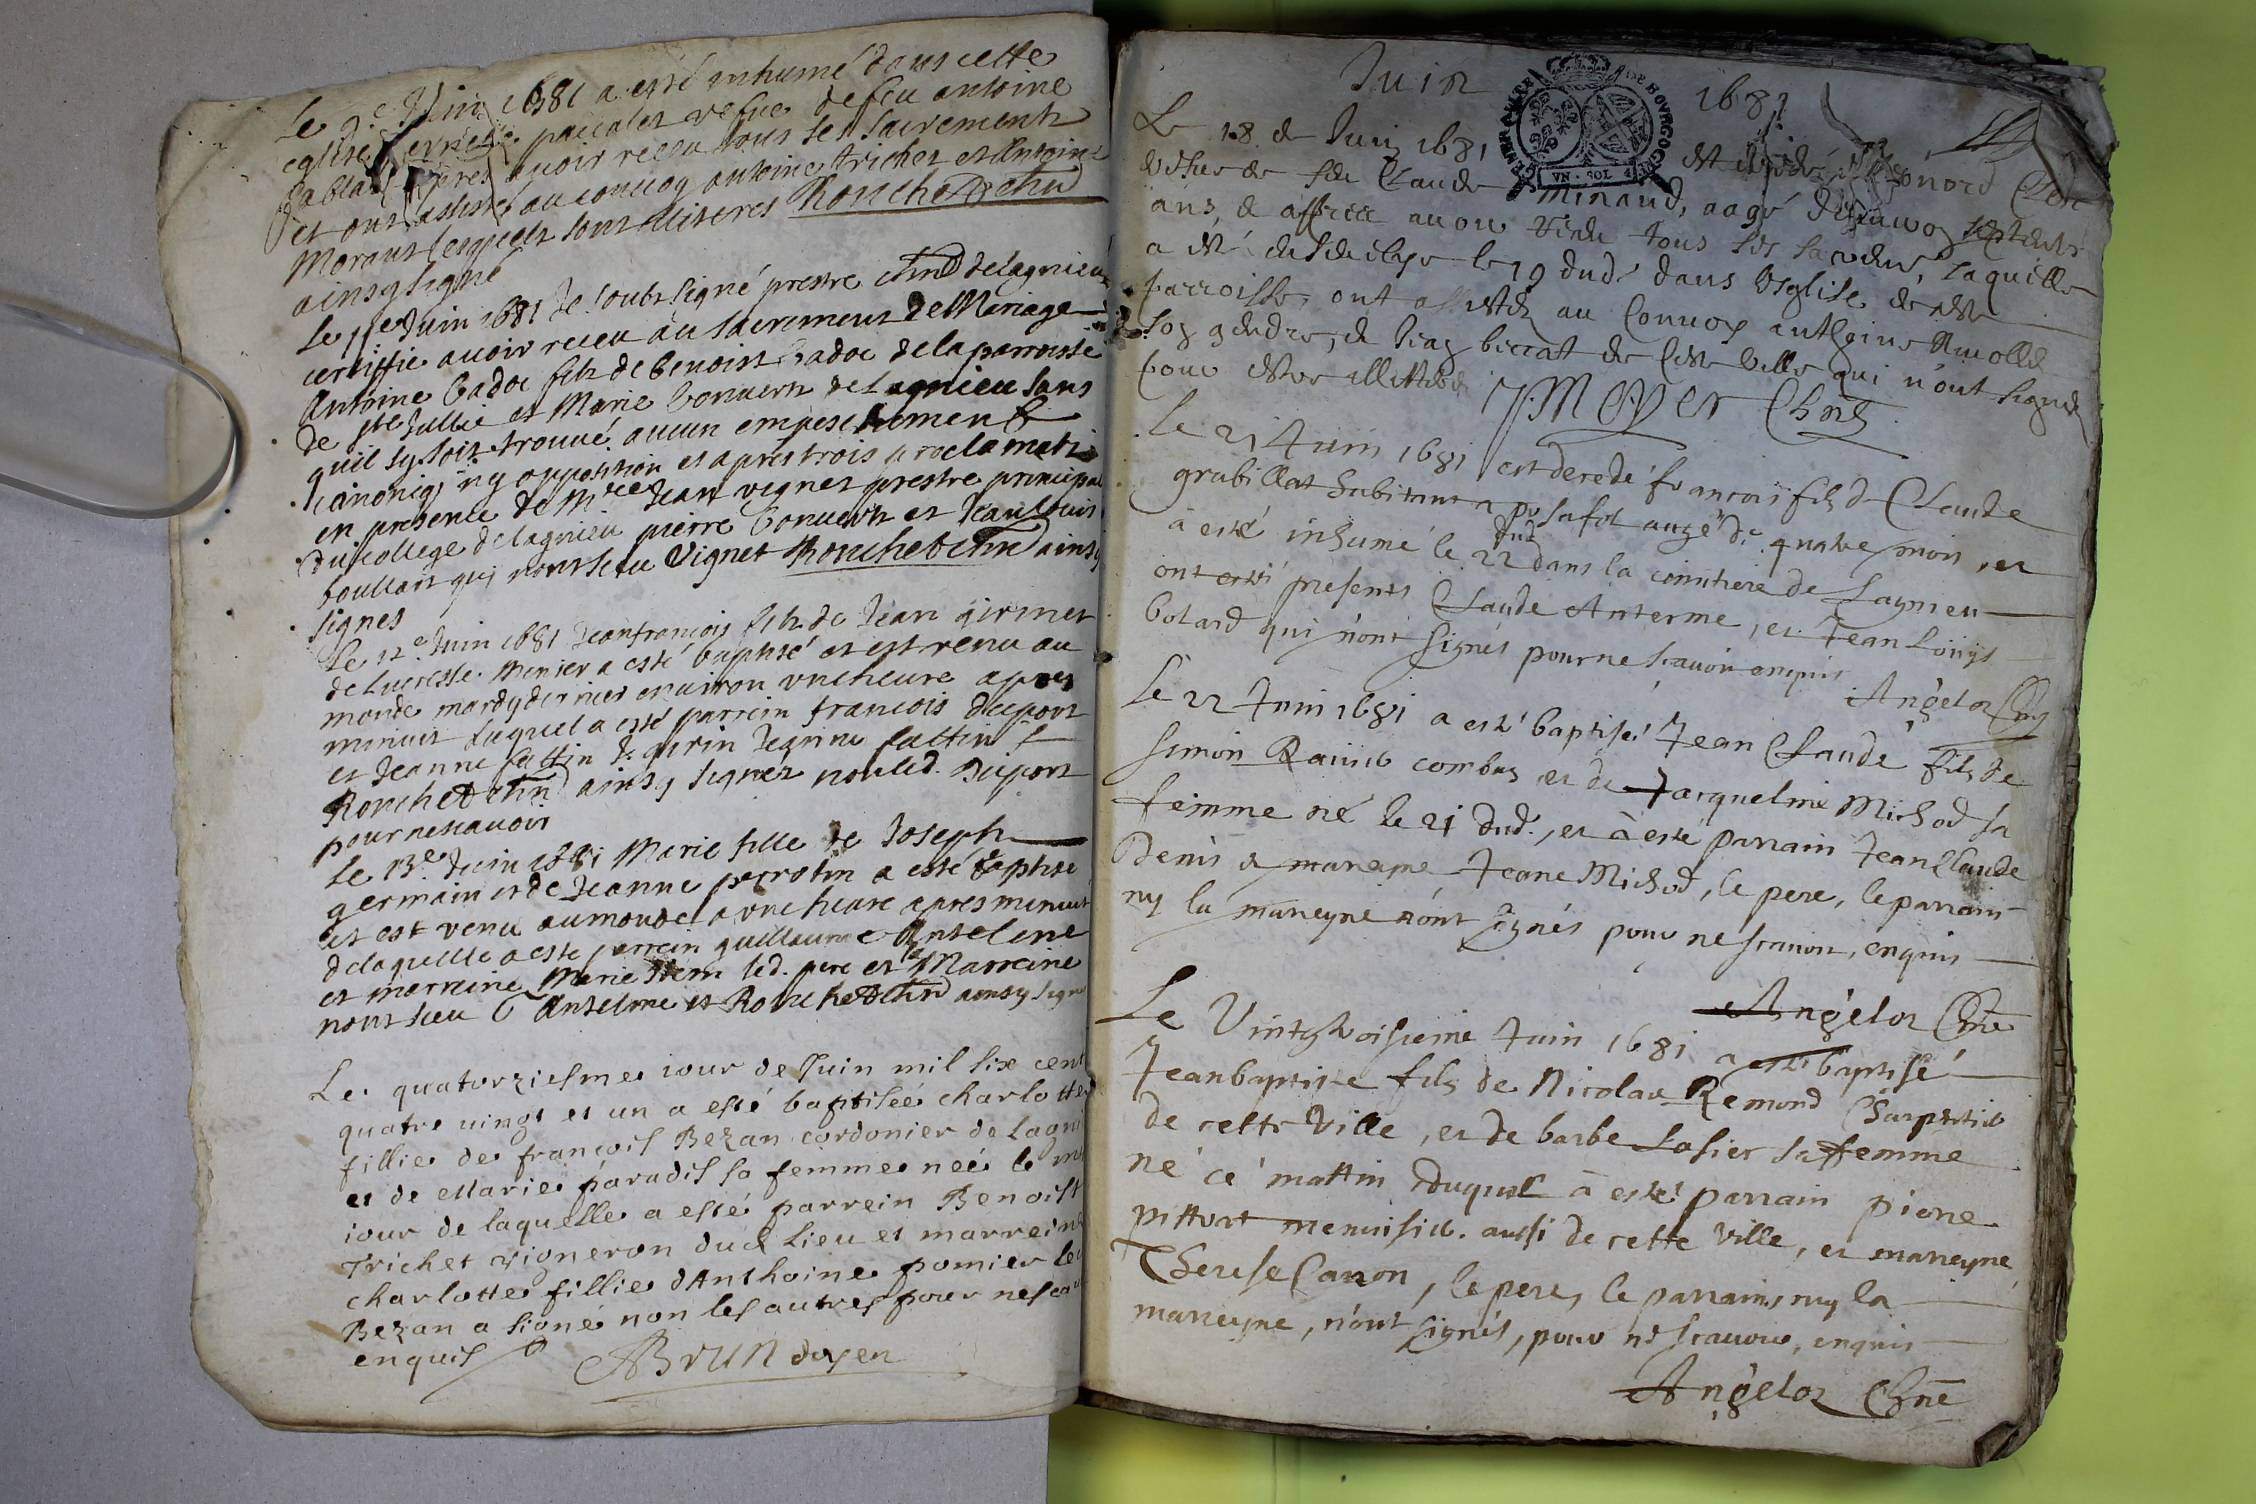 Le 9e Juin 1681 a esté inhumé dans cette
eglise pacalet vefue de feu antoine
apres avoir receu tous les sacrements
et ont assisté au convoy antoine trichet et Antoine
Moraut lesquels sont illiteres Rouchet chne
ainsy signé
Le 11e Juin 1681 Je soubz signé prestre chne de lagnieu
certiffie avoir receu au sacrement de Mariage
Antoine Cadoz filz de benoist Cadoz de la parroisse
de ste Jullie et Marie Convert de Lagnieu sans
quil sy soit trouué aucun empeschement
canonig ny opposition et apres trois proclamati
en presence de Mre Jean vignet prestre principal
du college de lagnieu pierre Convert et Jean louis
boullart qui nont sceu Vignet Rouchet chne ainsy
signes
Le 12e Juin 1681 Jean francois filz de Jean girmet
de lucresse Menier a esté baptisé et est venu au
monde mardy dernier environ vne heure apres
minuit duquel a esté parrein francois duport
et Jeanne fattin J. girin Jeanne fattin
Rouchet chne ainsy signez non led. Duport
pour ne scavoir
Le 13e Juin 1681 Marie fille de Joseph
germain et de Jeanne perrotin a esté baptisé
et est venu au monde a vne heure apres minuit
de laquelle a esté parrein guillaume Anselme
et marreine Marie led. pere et la Marreine
nont sceu G Anselme et Rouchet chne ainsy signé
Le quatorziesme iour de Juin mil six cent
quatre vingt et un a esté baptisée charlotte
fillie de françois Bezan cordonier de Lagni
et de Marie paradis sa femme née le m
iour de laquelle a esté parrein Benoist
Trichet vigneron dud lieu et marreine
charlotte fillie dAnthoine pomier le
Bezan a signé non les autres pour ne scav
enquis
ABrun doyen
Juin 1681
GENER BOVRGOGNE
VN · SOL 4
Le 18 de Juin 1681 est decedé
vesve de feu Claude Minaud, aagé denuiron septente
ans, et apprez auoir receu tous les sacrements, laquelle
a esté ensevelie le 19 dud dans l'église de cette
parroisse, ont assisté au convoy anthoine
son gendre, et Jean de cette ville qui n'ont signé
pour estre illitteré J. Meyer Chne
Le 21 Juin 1681 est decedé françois fils de Claude
grubillat habitant a posafol augé de quatre mois, et
à esté inhumé le 22 dud dans la cimitiere de Lagnieu
ont esté presents Claude Anterme, et Jean Loüys
botard qui n'ont signés pour ne scauoir enquis
Angelot Chne
Le 22 Juin 1681 a esté baptisé Jean Claude fils de
simon Ravier combes et de Jacquelme Michod sa
femme né le 21 dud., et à esté parrain Jean Claude
Denis et mareyne Jeane Michod, le pere, le parrain
ny la mareyne n'ont signés pour ne scauoir, enquis
Angelot Chne
Le Vintgtroisieme Juin 1681 a esté baptisé
Jean baptiste fils de Nicolas Remond Charpentier
de cette Ville, et de barbe Lasier sa femme
né ce mattin duquel à esté parrain pierre
pittort menuisier aussi de cette ville, et mareyne
Therese Caron, le pere, le parrain, ny la
mareyne, n'ont signés, pour ne scauoir, enquis
Angelot Chne